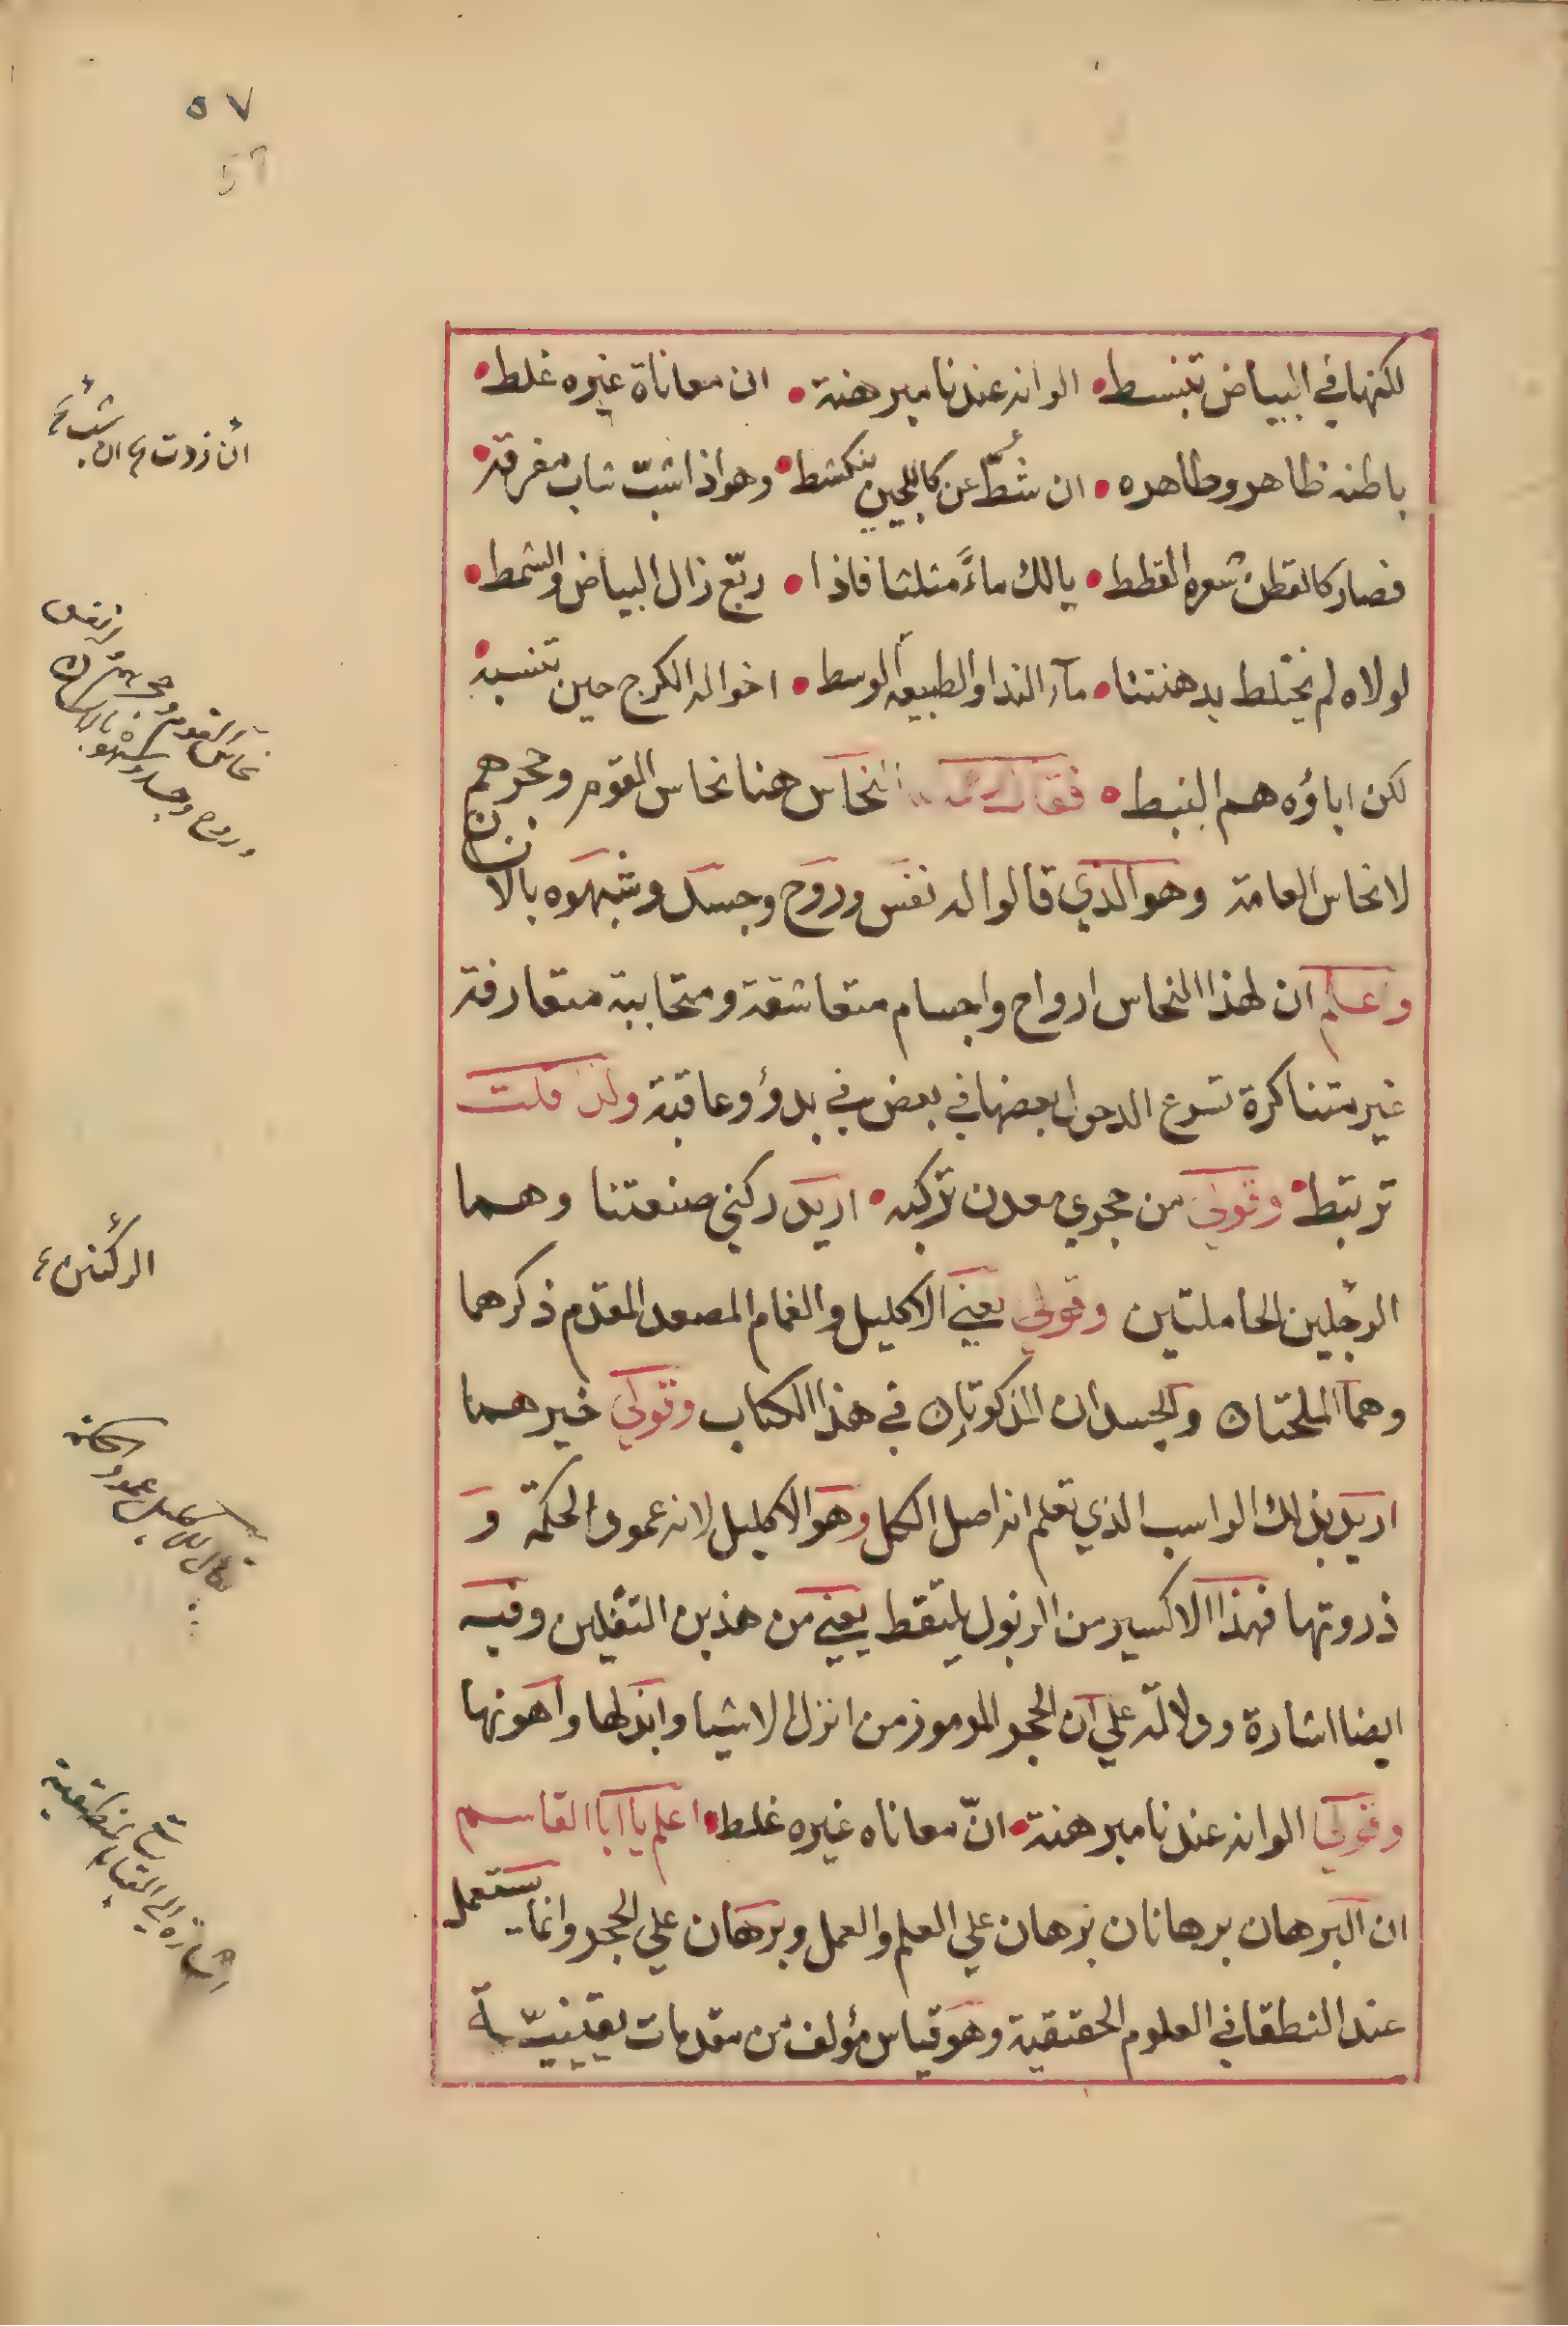 ٥٧
لكنها في البياض تنبسط • الوانه عندنا مبرهنة • ان معاناة غيره غلط •
باطنه ظاهر وظاهره • ان شطّ عن كاللجين ينكشط • وهو اذا شبّ شاب مفرقه •
فصار كالقطن شعره القطط • يالك ماءً مثلثا فاذا • ربّع زال البياض والشمط •
لولاه لم يختلط بدهنتنا • مآء الندا والطبيعه الوسط • اخواله الكرج حين تنسبه •
لكن اباؤه هم النبط • النحاس هنا نحاس القوم وحجرهم
لا نحاس العامة وهو الذي قالوا له نفس وروح وجسد وشبهوه بالانسان
واعلم ان لهذا النحاس ارواح واجسام متعاشقة ومتحاببة متعارفة
غير متناكرة تسرع الدخول بعضها في بعض في بدؤ وعاقبة ولذا قلت
ترتبط • وقولي من حجري معدن تركبه • اريد ركني صنعتنا وهما
الرجلين الحاملتين وقولي يعني الاكليل والغمام المصعد المقدم ذكرهما
وهما الملحتان والجسدان المذكوران في هذا الكتاب وقولي خيرهما
اريد بذلك الراسب الذي تعلم انه اصل الكل وهو الاكليل لانه عمود الحكمة و
ذروتها فهذا الاكسير من الزبول يلتقط يعني من هذين الثفلين وفيه
ايضا اشارة ودلالة علي ان الحجر المرموز من انزل الاشيا وابذلها واهونها
وقولي الوانه عندنا مبرهنة • انّ معاناه غيره غلط • اعلم يا ابا القاسم
ان البرهان برهانان برهان علي العلم والعمل وبرهان علي الحجر وانما يستعمل
عند النطقا في العلوم الحقيقية وهو قياس مؤلف من مقدمات يقينيّة
نحاس القوم وحجرهم
الركنين